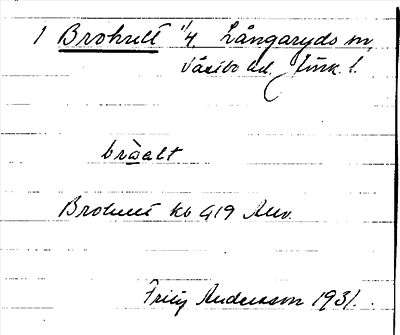 1 Brohult 1/4 Långaryds sn,
Västbo hd. Jönk. l.
bròalt
Brohult kb 419 Anv.
Andersson 1931.